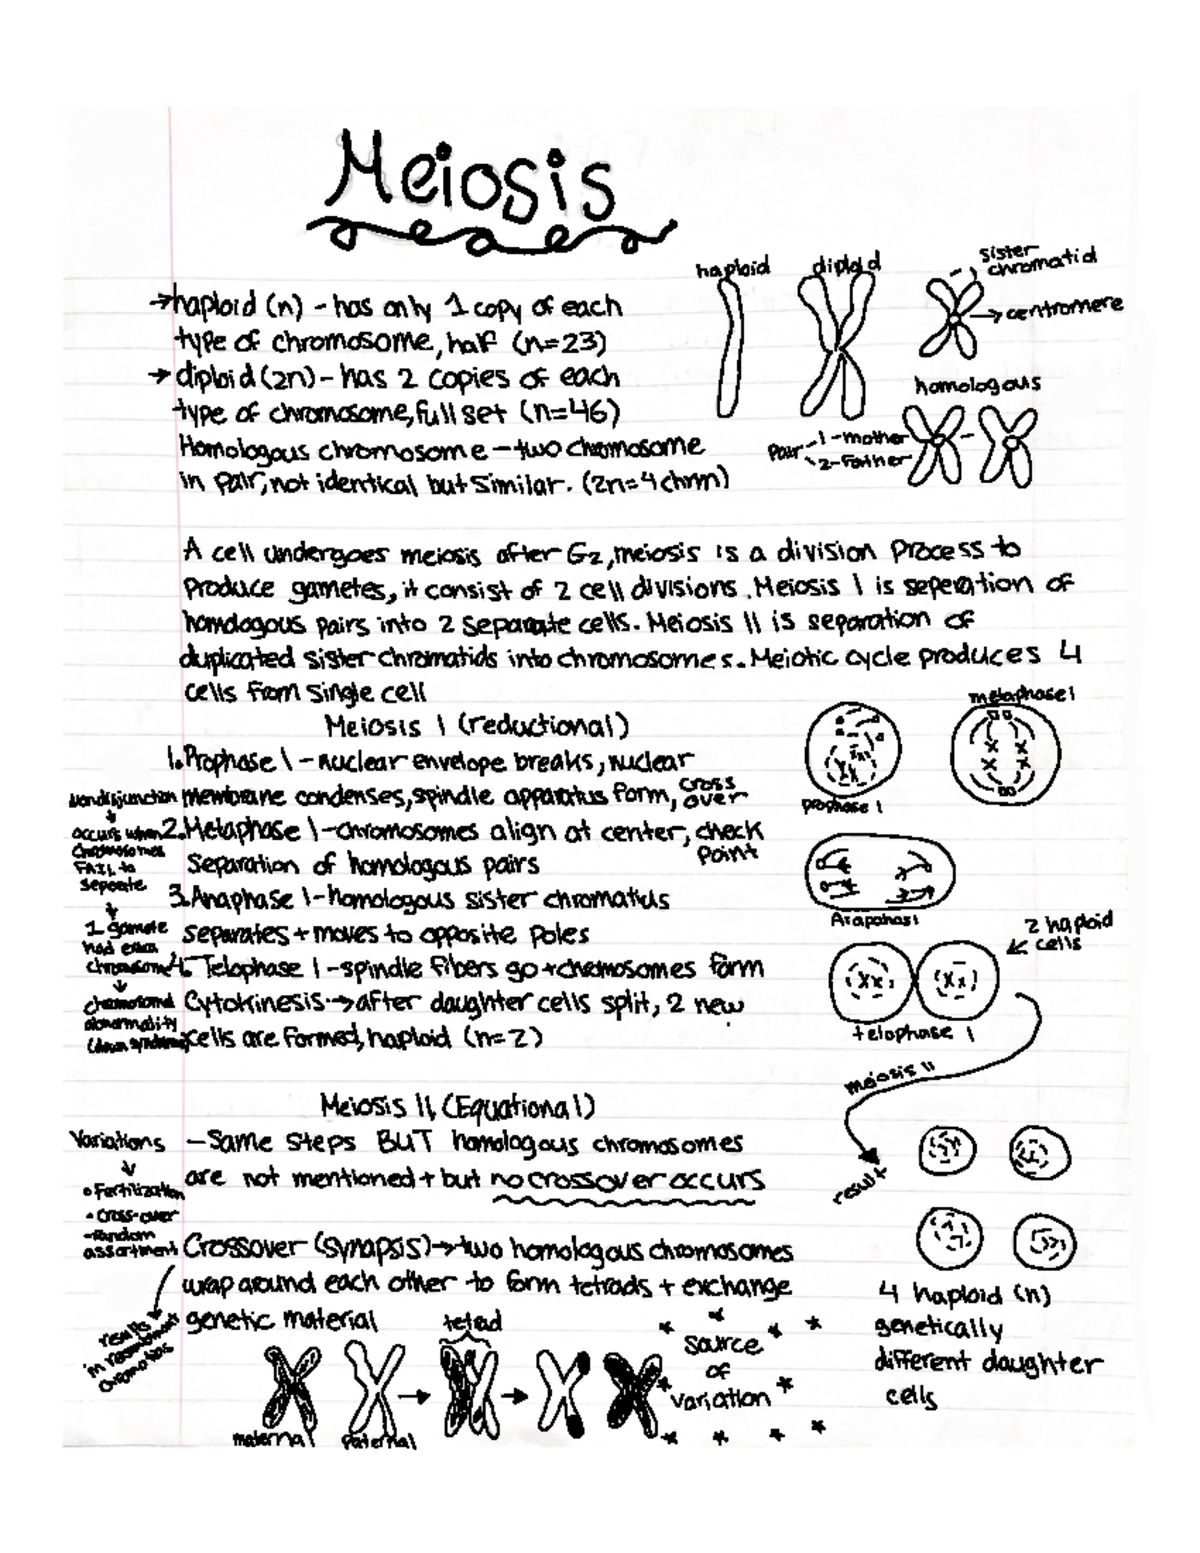 Meiosis
haploid
diploid
sister
chromatid
→ centromere
→haploid (n) - has only 1 copy of each
type of chromosome, half (n=23)
→ diploid (2n) - has 2 copies of each
type of chromosome, full set (n=46)
Homologous chromosome - two chromosome
in pair, not identical but similar. (2n=4 chrm)
homologous
Pair 1 - mother
2 - father
A cell undergoes meiosis after G2, meiosis is a division process to
produce gametes, it consist of 2 cell divisions. Meiosis I is seperation of
homologous pairs into 2 separate cells. Meiosis II is separation of
duplicated sister chromatids into chromosomes. Meiotic cycle produces 4
cells from single cell
Meiosis I (reductional)
1. Prophase I - nuclear envelope breaks, nuclear
membrane condenses, spindle apparatus form, cross over
2. Metaphase I - chromosomes align at center, check point
separation of homologous pairs
3. Anaphase I - homologous sister chromatids
separates + moves to opposite poles
4. Telophase I - spindle fibers go + chromosomes form
Cytokinesis → after daughter cells split, 2 new
cells are formed, haploid (n=2)
Nondisjunction
occurs when
chromosomes
FAIL to
seperate
1 gamete
had extra
chromosome
abnormality
(down syndrome)
prophase 1
metaphase 1
telophase 1
2 haploid
cells
meiosis II
result
Meiosis II (Equational)
- Same steps BUT homologous chromosomes
are not mentioned + but no crossover occurs
Variations
• Fertilization
• Cross-over
- random
assortment
results
Crossover (synapsis) → two homologous chromosomes
wrap around each other to form tetrads + exchange
genetic material
tetrad
maternal
paternal
source
of
variation
4 haploid (n)
genetically
different daughter
cells